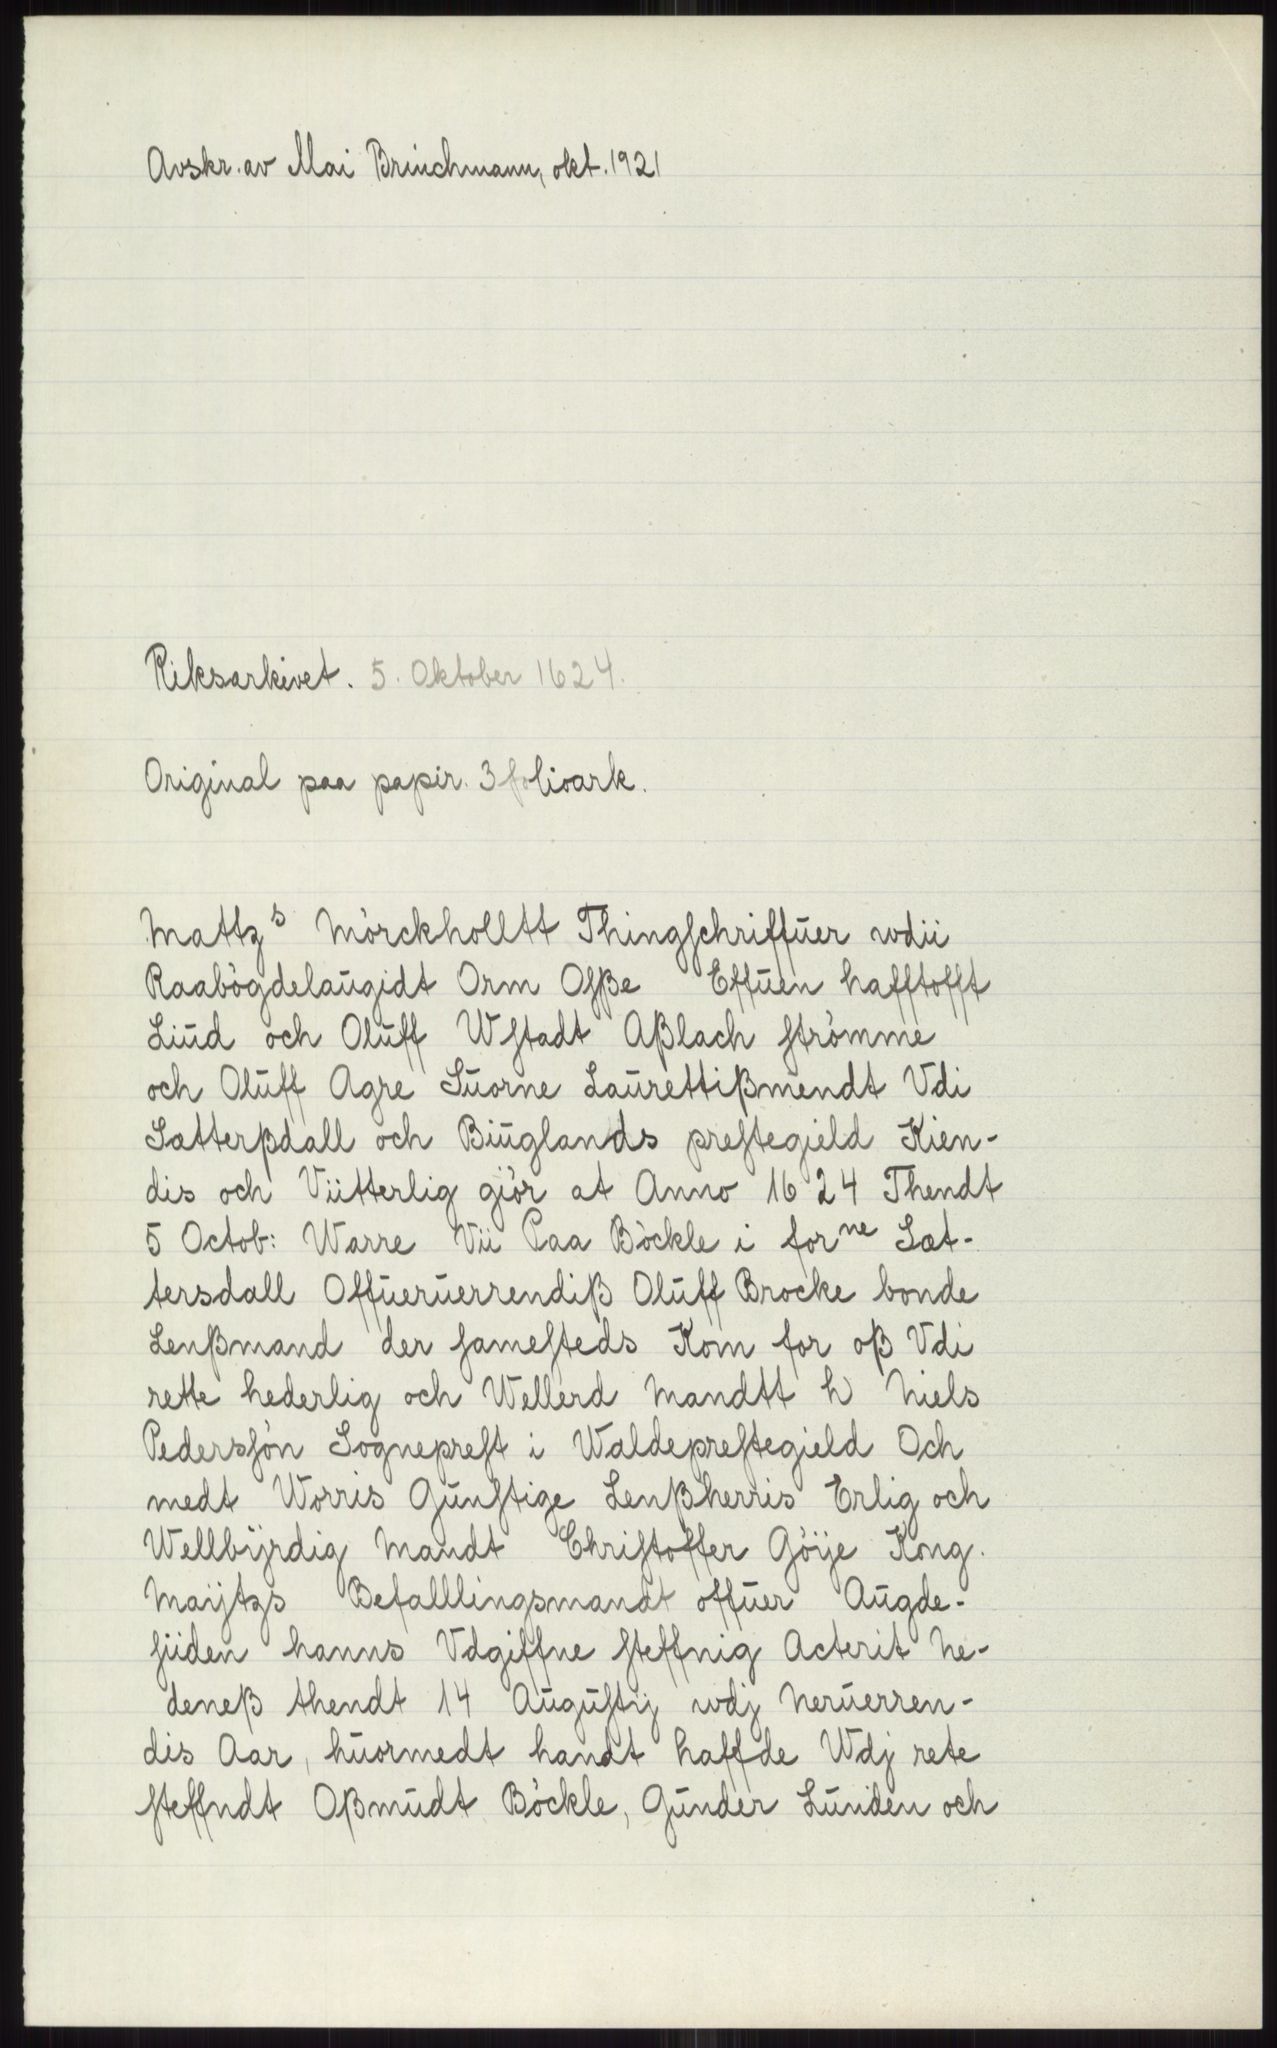 Avskr. av Mai Brinchmann, okt. 1921
Riksarkivet. 5. Oktober 1624.
Original paa papir. 3 folioark.
Mattzs Mörckholltt Thingschriffuer wdii
Raabögdelaugidt Orm Osße Effuen hafftofft
Liud och Oluff Wstadt Aßlach strömme
och Oluff Agre Suorne Laurettißmendt Vdi
Sætterßdall och Biuglands prestegield Kien-
dis och Viitterlig giör at Anno 1624 Thendt
5 Octob: Warre Vii Paa Böckle i forne Sæt-
tersdall Offueruerrendiß Oluff Brocke bonde
Lenßmand der samesteds Kom for oß Vdi
rette hederlig och Wellerd Mandtt h Niels
Pederssön Sogneprest i Waldeprestegield Och
medt Worris Gunstige Lenßherris Erlig och
Wellbÿrdig Mandt Christoffer Göije Kong.
Maijtzs Befalllingsmandt offuer Augde-
siiden hanns Vdgiffne steffnig Acterit Ne-
deneß thendt 14 Augustij wdj Neruerren-
dis Aar, huormedt handt haffde Wdj rete
steffndt Oßmudt Böckle, Gunder Lunden och